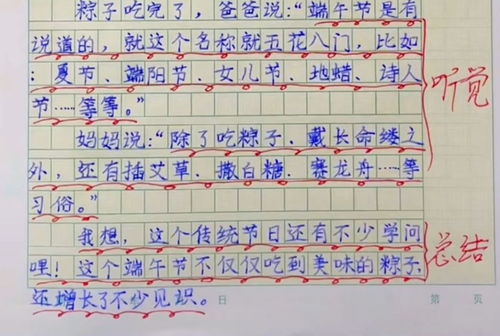 粽子吃完了，爸爸说：“端午节是有
说道的，就这个名称就五花八门，比如
：夏节、端阳节、女儿节、地蜡、诗人
节……等等。”
听觉
妈妈说：“除了吃粽子、戴长命缕之
外，还有插艾草、撒白糖、赛龙舟……等
习俗。”
我想，这个传统节日还有不少学问
哩！这个端午节不仅仅吃到美味的粽子，
还增长了不少见识。
总结
日
第 页